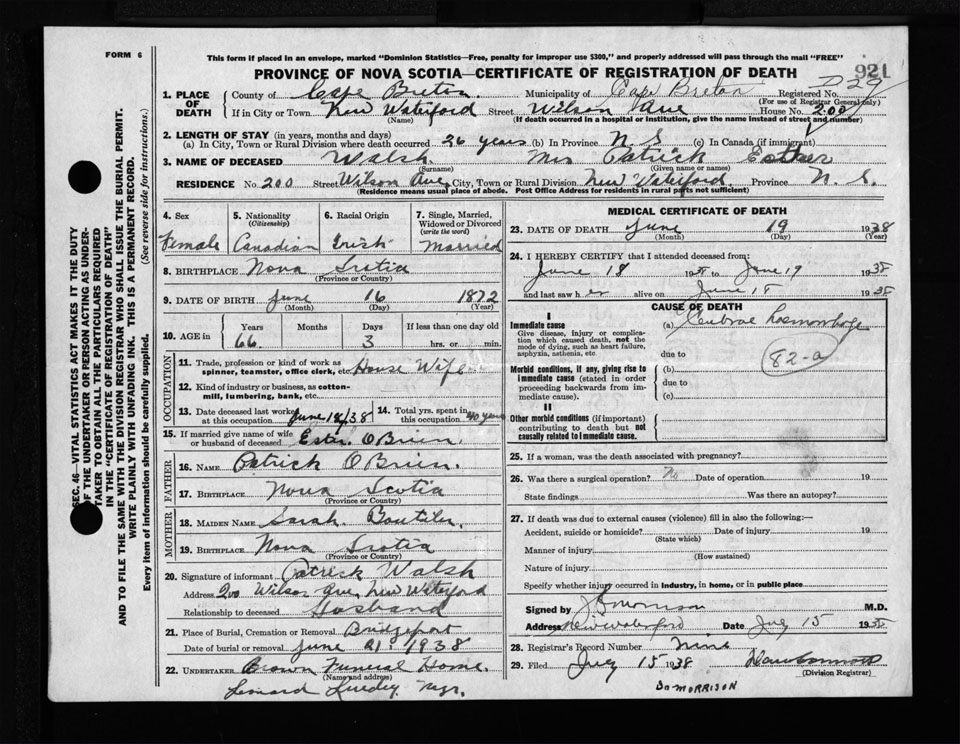 FORM 6
This form if placed in an envelope, marked "Dominion Statistics—Free, penalty for improper use $300," and properly addressed will pass through the mail "FREE"
921
PROVINCE OF NOVA SCOTIA—CERTIFICATE OF REGISTRATION OF DEATH
1. PLACE OF DEATH
County of Cape Breton Municipality of Cape Breton Registered No.
(For use of Registrar General only)
If in City or Town New Waterford Street Wilson Ave House No. 200
(Name) (If death occurred in a hospital or institution, give the name instead of street and number)
2. LENGTH OF STAY (in years, months and days)
(a) In City, Town or Rural Division where death occurred 26 years (b) In Province N. S (c) In Canada (if immigrant)
3. NAME OF DECEASED Walsh Mrs Patrick Esther
(Surname) (Given name or names)
RESIDENCE No. 200 Street Wilson Ave City, Town or Rural Division New Waterford. Province N. S.
(Residence means usual place of abode. Post Office Address for residents in rural parts not sufficient)
4. Sex
Female
5. Nationality
(Citizenship)
Canadian
6. Racial Origin
Irish
7. Single, Married, Widowed or Divorced
(write the word)
Married
8. BIRTHPLACE Nova Scotia
(Province or Country)
9. DATE OF BIRTH June 16 1872
(Month) (Day) (Year)
10. AGE in
Years Months Days If less than one day old
66 3 hrs. or min.
OCCUPATION
11. Trade, profession or kind of work as spinner, teamster, office clerk, etc. House Wife
12. Kind of industry or business, as cotton-mill, lumbering, bank, etc.
13. Date deceased last worked at this occupation June 18/38
14. Total yrs. spent in this occupation 40 years
15. If married give name of wife or husband of deceased Ester. OBrien.
FATHER
16. NAME Patrick OBrien.
17. BIRTHPLACE Nova Scotia
(Province or Country)
MOTHER
18. MAIDEN NAME Sarah. Boutilier.
19. BIRTHPLACE Nova Scotia
(Province or Country)
20. Signature of informant Patrick Walsh
Address 200 Wilson Ave, New Waterford
Relationship to deceased Husband
21. Place of Burial, Cremation or Removal Bridgeport
Date of burial or removal June 21. 1938
22. UNDERTAKER Brown Funeral Home.
(Name and address)
Leonard Mgr.
MEDICAL CERTIFICATE OF DEATH
23. DATE OF DEATH June 19 1938
(Month) (Day) (Year)
24. I HEREBY CERTIFY that I attended deceased from:
June 18 1938 to June 19 1938
and last saw her alive on June 18 1938
CAUSE OF DEATH
I
Immediate cause
Give disease, injury or complication which caused death, not the mode of dying, such as heart failure, asphyxia, asthenia, etc
(a) Cerebral haemorrhage
due to
82-a
Morbid conditions, if any, giving rise to immediate cause (stated in order proceeding backwards from immediate cause).
(b)
due to
(c)
II
Other morbid conditions (if important) contributing to death but not causally related to immediate cause.
25. If a woman, was the death associated with pregnancy?
26. Was there a surgical operation? No Date of operation 19
State findings Was there an autopsy?
27. If death was due to external causes (violence) fill in also the following:—
Accident, suicide or homicide? Date of injury 19
(State which)
Manner of injury
(How sustained)
Nature of injury
Specify whether injury occurred in industry, in home, or in public place
Signed by J S Morrison M.D.
Address New Waterford Date July 15 1938
28. Registrar's Record Number Nine
29. Filed July 15 1938
(Division Registrar)
Dr MORRISON
SEC. 46—VITAL STATISTICS ACT MAKES IT THE DUTY
OF THE UNDERTAKER OR PERSON ACTING AS UNDER-
TAKER TO OBTAIN ALL THE PARTICULARS REQUIRED
IN THE "CERTIFICATE OF REGISTRATION OF DEATH"
AND TO FILE THE SAME WITH THE DIVISION REGISTRAR WHO SHALL ISSUE THE BURIAL PERMIT.
WRITE PLAINLY WITH UNFADING INK. THIS IS A PERMANENT RECORD.
Every item of information should be carefully supplied. (See reverse side for instructions.)